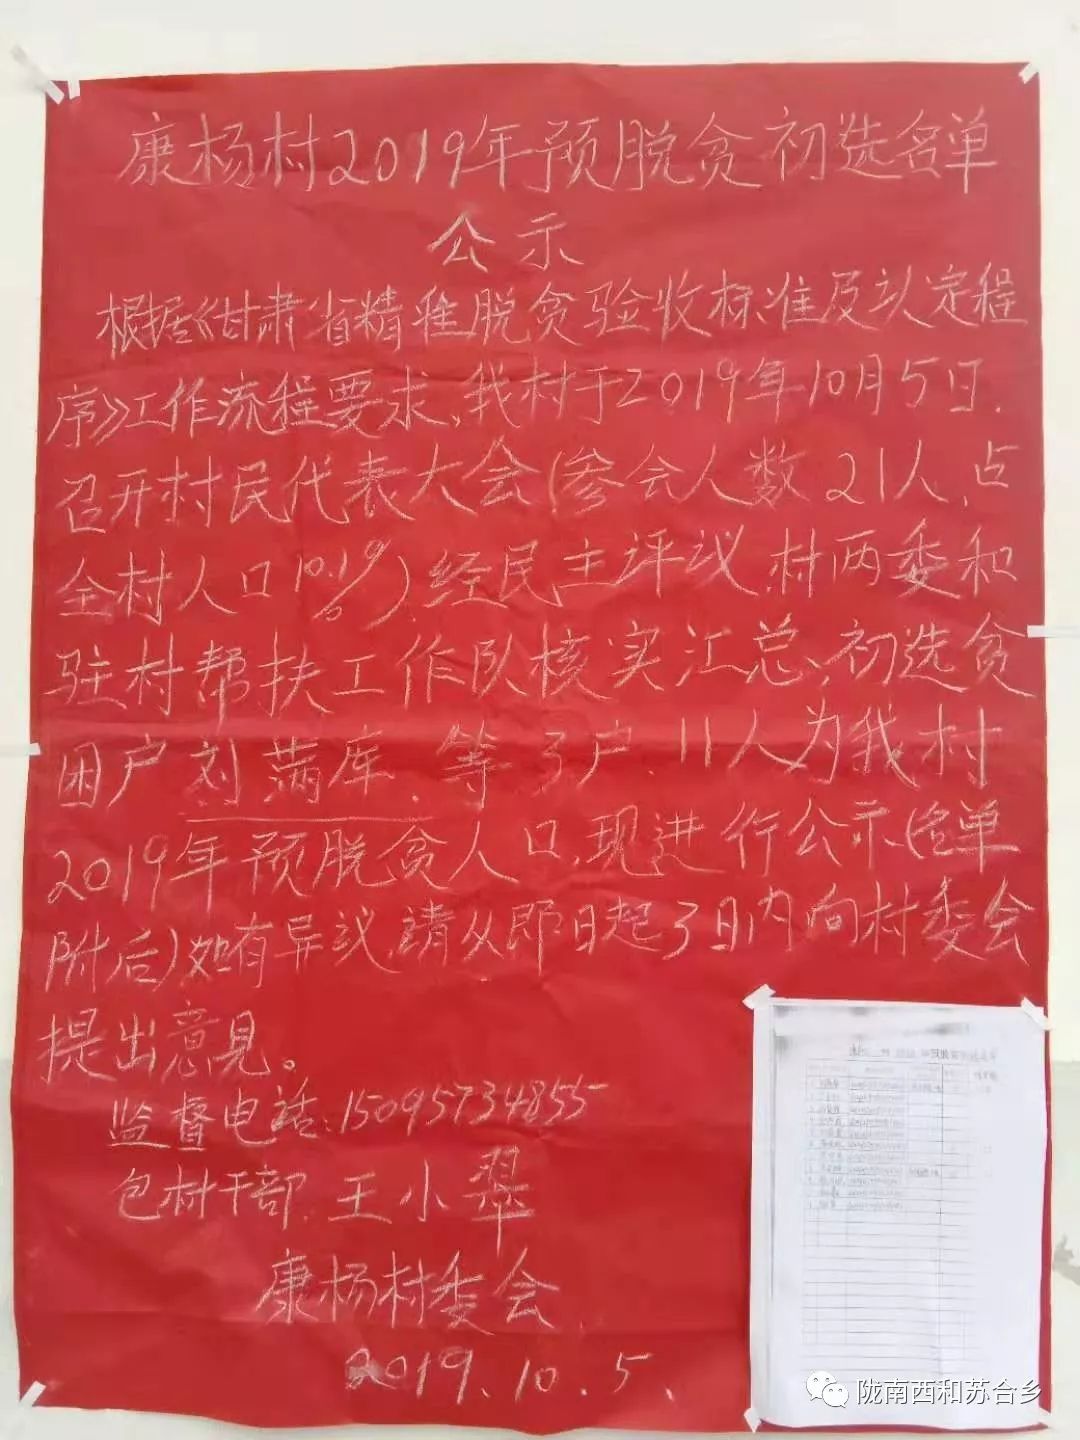 康杨村2019年预脱贫初选名单
公示
根据《甘肃省精准脱贫验收标准及认定程
序》工作流程要求,我村于2019年10月5日.
召开村民代表大会(参会人数21人,占
全村人口10.19%)经民主评议,村两委和
驻村帮扶工作队核实汇总、初选贫
困户刘满库.等3户.11人为我村
2019年预脱贫人口,现进行公示(名单
附后)如有异议,请从即日起3日内向村委会
提出意见。
监督电话:15095734855
包村干部:王小翠
康杨村委会
2019.10.5.
陇南西和苏合乡